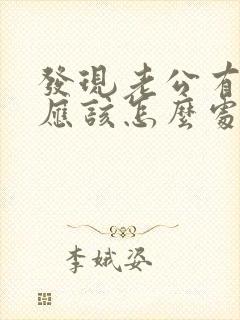 發現老公有
應該怎麼處
李娥姿